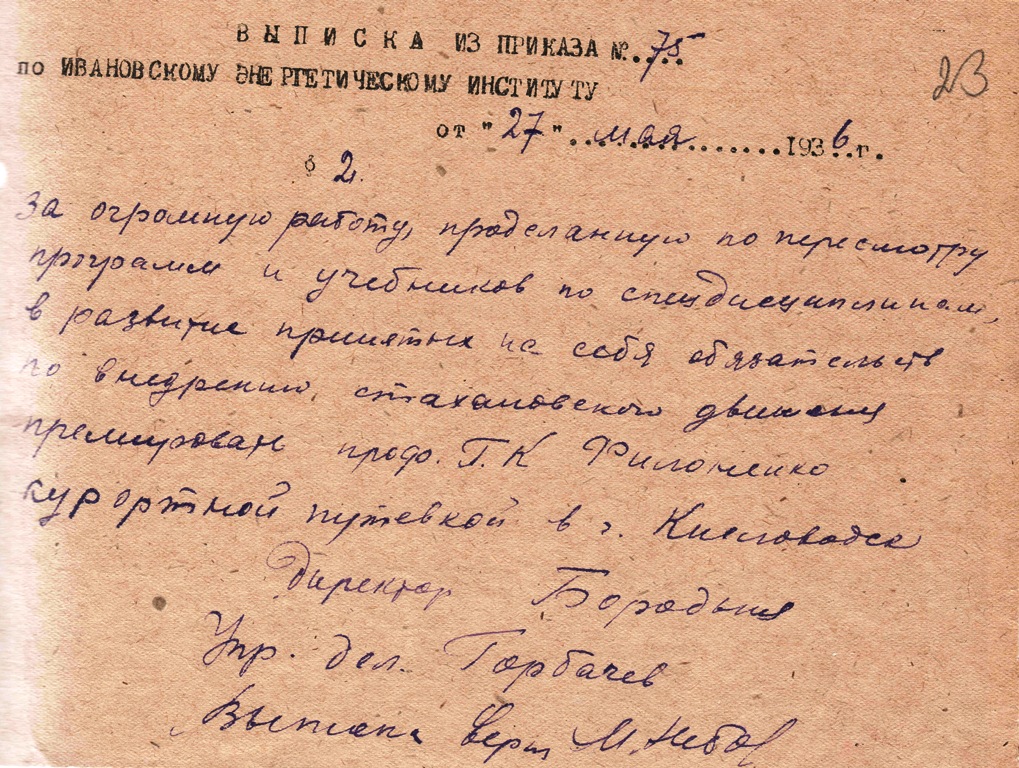 ВЫПИСКА ИЗ ПРИКАЗА №.75..
23
по ИВАНОВСКОМУ ЭНЕРГЕТИЧЕСКОМУ ИНСТИТУТУ
от "27" мая 1936 г.
§ 2.
За огромную работу, проделанную по пересмотру
программ и учебников по спецдисциплинам,
в развитие принятых на себя обязательств
по внедрению стахановского движения
премирован проф. Г.К Филоненко
курортной путевкой в г. Кисловодск
Директор Бородин
Упр. дел. Горбачев
Выписка верна